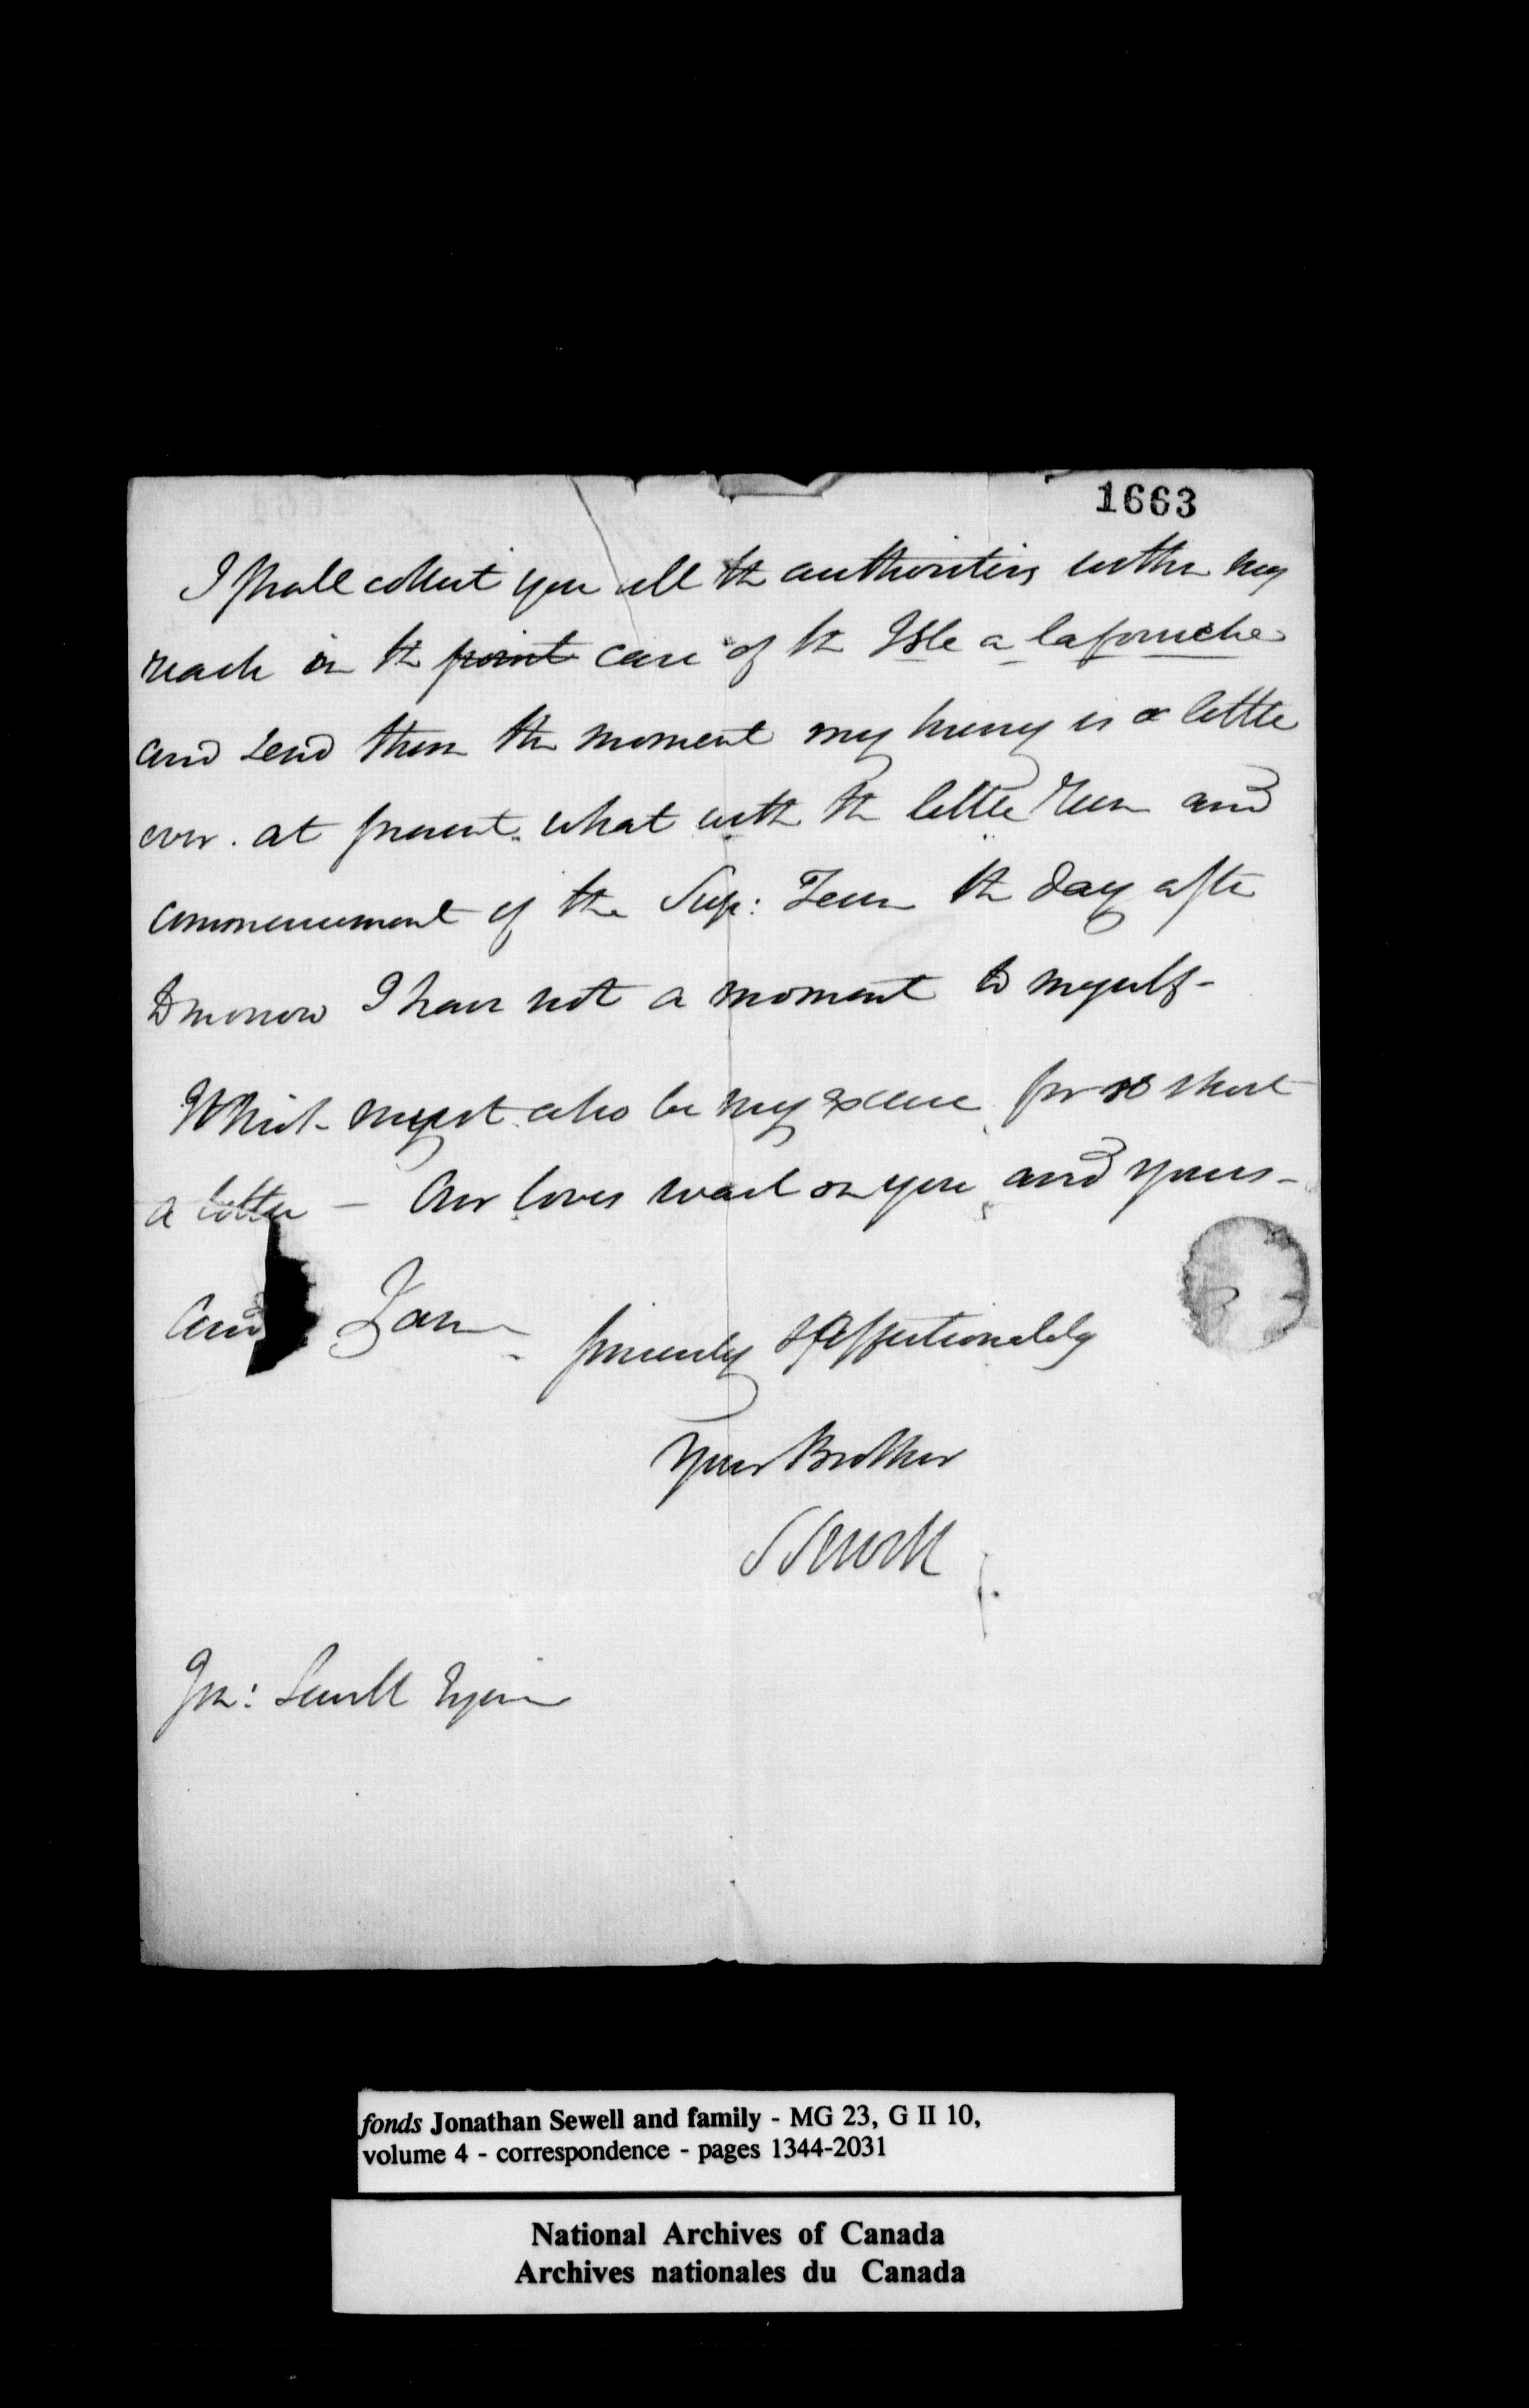 1663
I shall collect you all the authorities within my
reach in the point case of the Isle a lafourche
and send them the moment my hurry is a little
over. at present, what with the little Term and
commencement of the Sup: Term the day after
tomorrow I have not a moment to myself -
Which must also be my excuse for so short
a letter - Our loves wait on you and yours -
And I am - sincerely & Affectionately
Your Brother
S Sewell
Jon: Sewell Esquire
fonds Jonathan Sewell and family - MG 23, G II 10,
volume 4 - correspondence - pages 1344-2031
National Archives of Canada
Archives nationales du Canada